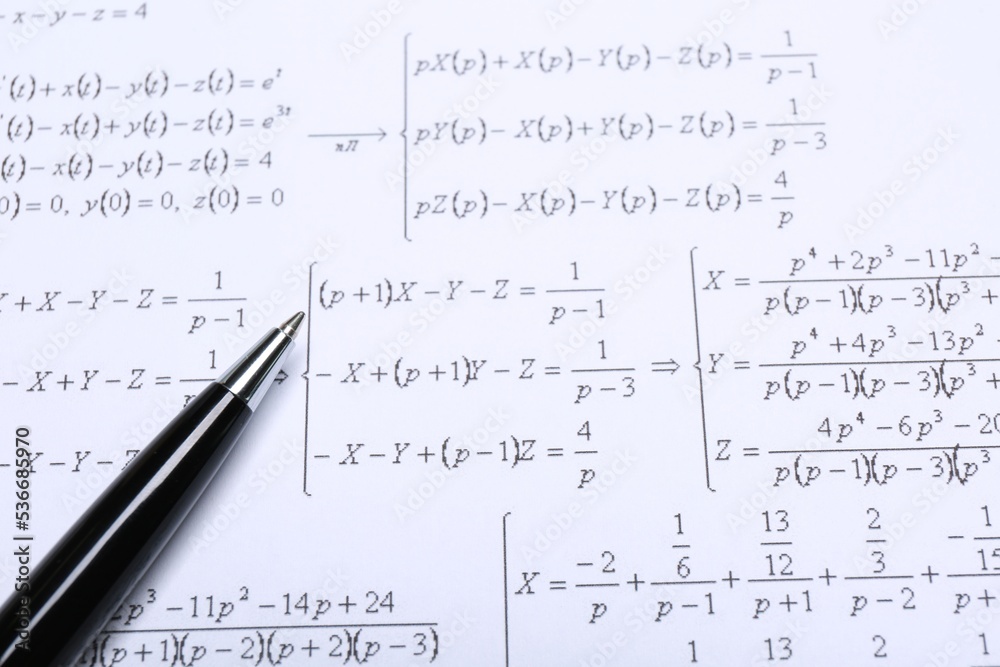 - x - y - z = 4
'(t) + x(t) - y(t) - z(t) = e^t
'(t) - x(t) + y(t) - z(t) = e^{3t}
(t) - x(t) - y(t) - z(t) = 4
0) = 0, y(0) = 0, z(0) = 0
пЛ
pX(p) + X(p) - Y(p) - Z(p) = 1/(p - 1)
pY(p) - X(p) + Y(p) - Z(p) = 1/(p - 3)
pZ(p) - X(p) - Y(p) - Z(p) = 4/p
+ X - Y - Z = 1/(p - 1)
- X + Y - Z = 1
- Y - Z
⇒
(p + 1)X - Y - Z = 1/(p - 1)
- X + (p + 1)Y - Z = 1/(p - 3)
- X - Y + (p - 1)Z = 4/p
⇒
X = p^4 + 2p^3 - 11p^2 - / p(p - 1)(p - 3)(p^3 +
Y = p^4 + 4p^3 - 13p^2 / p(p - 1)(p - 3)(p^3 +
Z = 4p^4 - 6p^3 - 20 / p(p - 1)(p - 3)(p^3
X = -2/p + (1/6)/(p - 1) + (13/12)/(p + 1) + (2/3)/(p - 2) + - 1/15 / p +
1 13 2 1
p^3 - 11p^2 - 14p + 24
)(p + 1)(p - 2)(p + 2)(p - 3)
Adobe Stock | #536685970